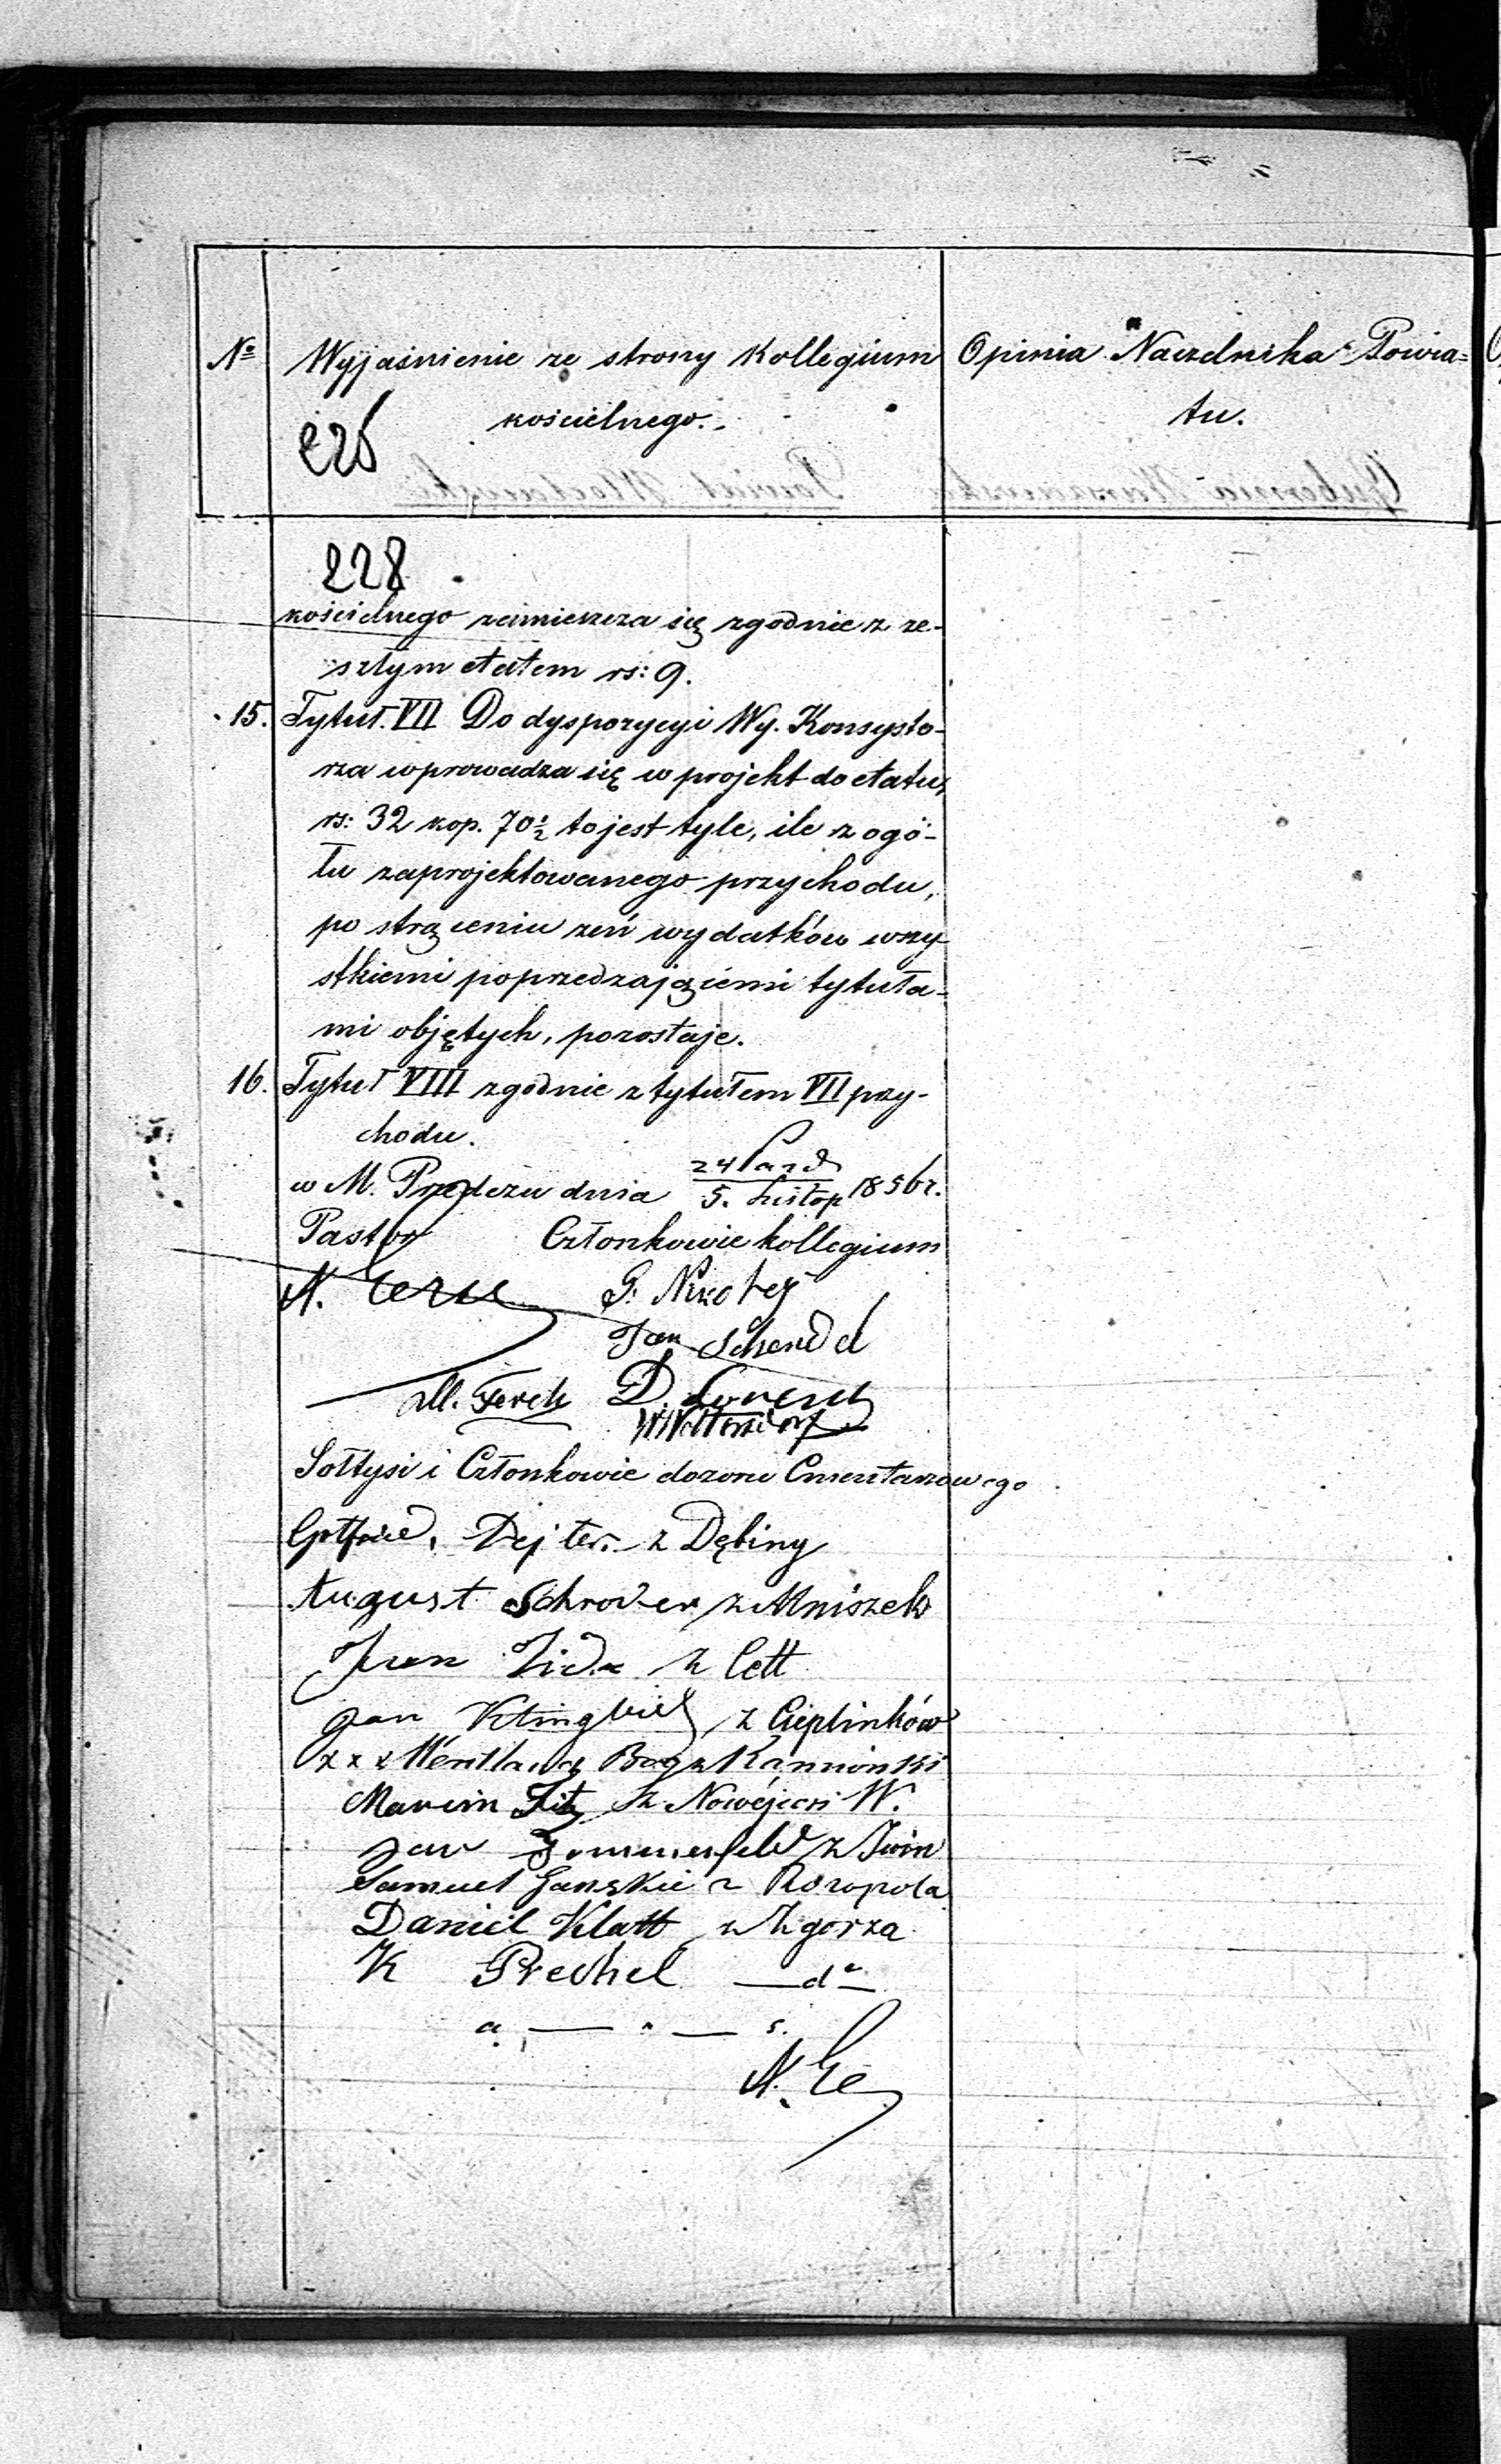 № Wyjaśnienie ze strony Kollegium Opinia Naczelnika Powia=
kościelnego. tu.
226
Gubernia Warszawska Powiat Włocławski
228
kościelnego zamieszcza się zgodnie z ze-
szłym etatem rs: 9.
15. Tytuł. VII Do dyspozycyi Wy. Konsysto-
rza wprowadza się w projekt do etatu,
rs: 32 kop. 70½ to jest tyle, ile z ogó-
łu zaprojektowanego przychodu,
po strąceniu zeń wydatków wszy
stkiemi poprzedzającemi tytuła-
mi objętych, pozostaje.
16. Tytuł VIII zgodnie z tytułem VII przy-
chodu.
w M. Przedczu dnia 24 Paźd / 5. Listop 1856 r.
Pastor Członkowie kollegium
N.
G.
Jan Schendel
M. Ferch D. Lorenz
Sołtysi i Członkowie dozoru Cmentarzowego
Gottfried Dejter z Dębiny
August Schroder z Mniszek
Jan z Cett
Jan Klingbiel z Cieplinków
x x x
Marcin z Nowéjwsi W.
Jan Sommerfeld z
Samuel Ganskie z Rozopola
Daniel Klatt z Zgorza
K Prechel — do —
N.